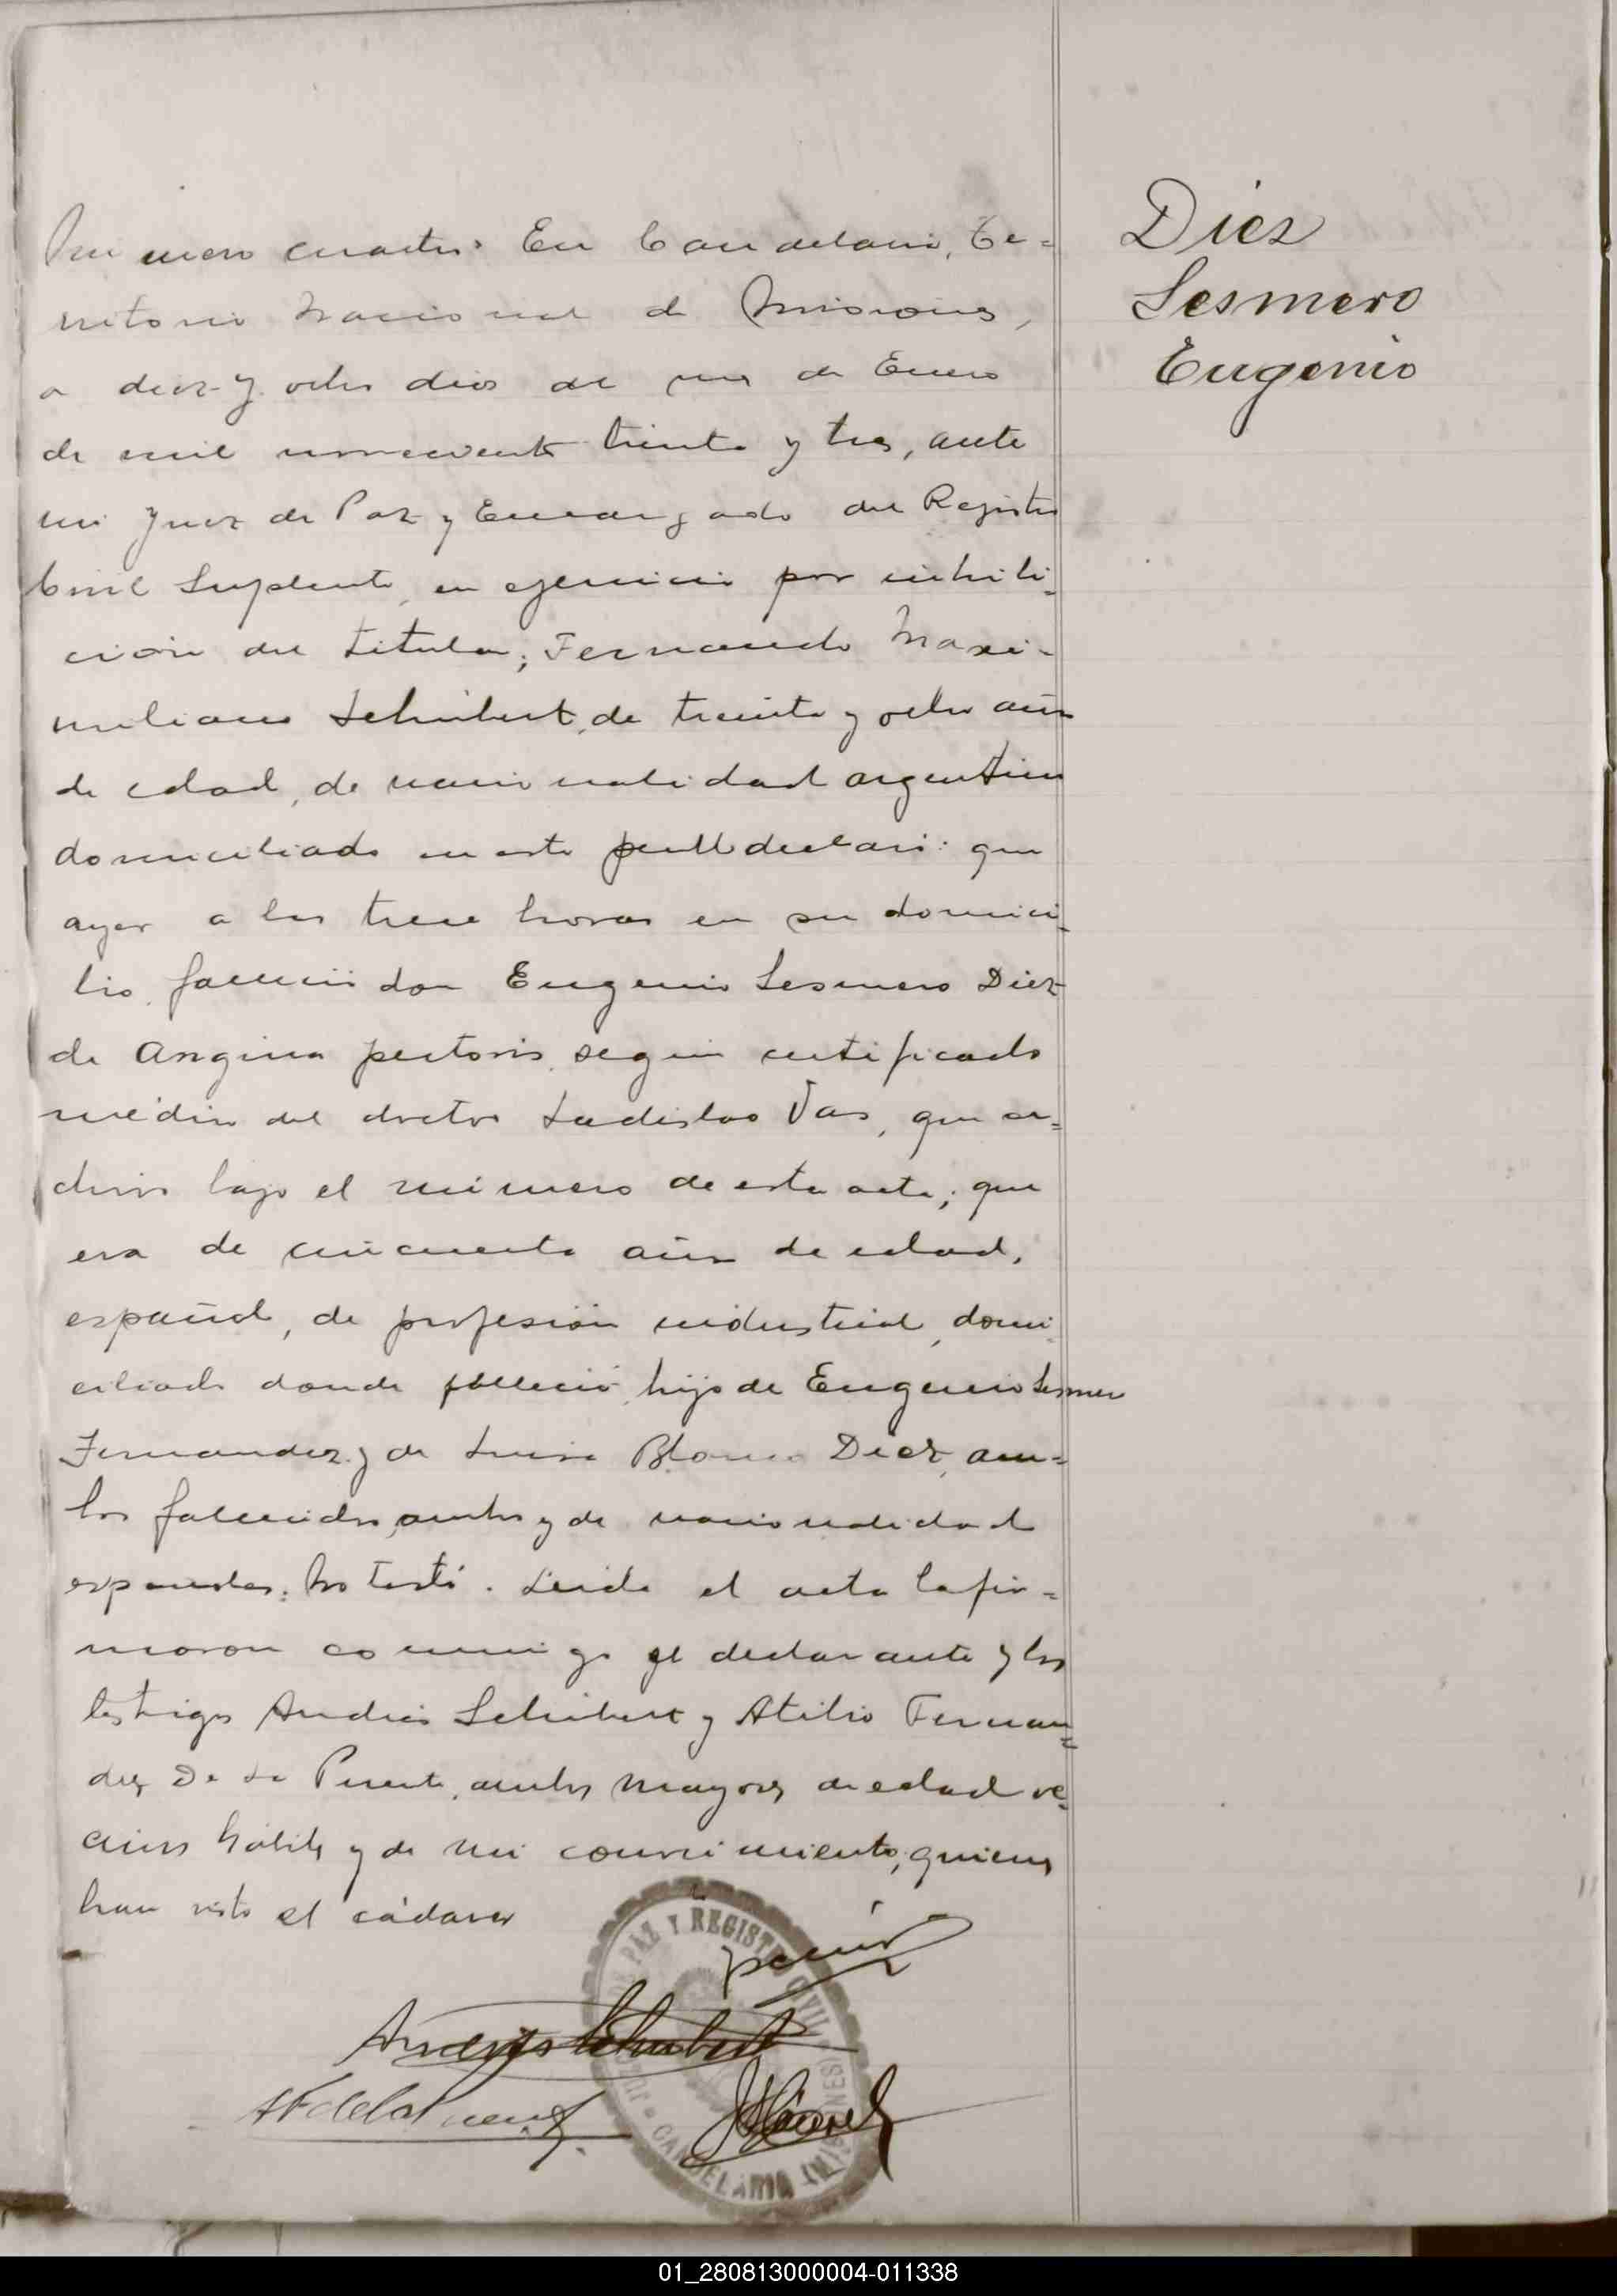 Número cuatro: En Candelaria, Te=
rritorio Nacional de Misiones,
a diez y ocho dias del mes de Enero
de mil novecientos treinta y tres, ante
mi Juez de Paz y Encargado del Registro
Civil Suplente, en ejercicio por inhibi=
ción del titular; Fernando Maxi-
miliano Schubert, de treinta y ocho años
de edad, de nacionalidad argentino
domiciliado en este declaró: que
ayer a las trece horas en su domici=
lio, falleció don Eugenio Sesmero Diez
de Angina pectoris, segun certificado
médico del doctor Ladislao Vas, que ar=
chivo bajo el número de esta acta; que
era de cincuenta años de edad,
español, de profesión industrial, domi=
ciliado donde falleció, hijo de Eugenio Sesmero
Fernandez y de Luisa Blanco Diez, am=
bos fallecidos, ambos y de nacionalidad
españoles. No testó. Leida el acta la fir=
maron conmigo el declarante y los
testigos Andrés Schubert y Atilio Fernan=
dez De La Puente, ambos mayores de edad ve=
cinos hábiles y de mi conocimiento; quienes
han visto el cádaver
Andrés Schubert
AF de la Puente
PAZ Y REGISTRO CIVIL
CANDELARIA (MISIONES)
Diez
Sesmero
Eugenio
01_280813000004-011338